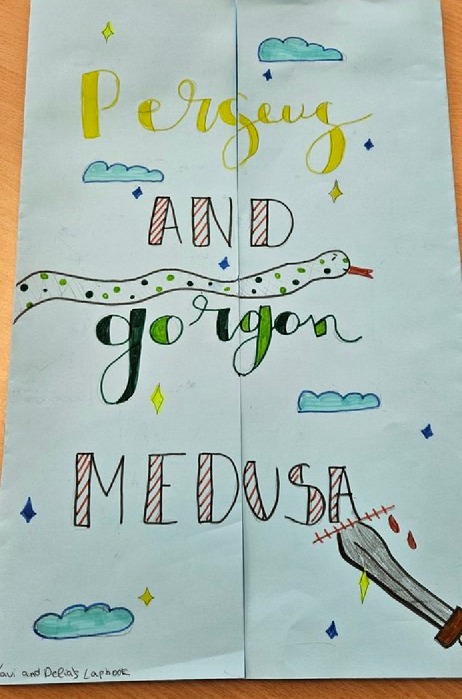 Perseus
AND
gorgon
MEDUSA
and Delia's Lapbook